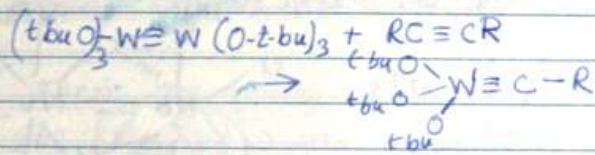 (t buO)₃-W≡W (O-t-bu)₃ + RC≡CR
→ t bu O
t bu O W≡C-R
t bu O